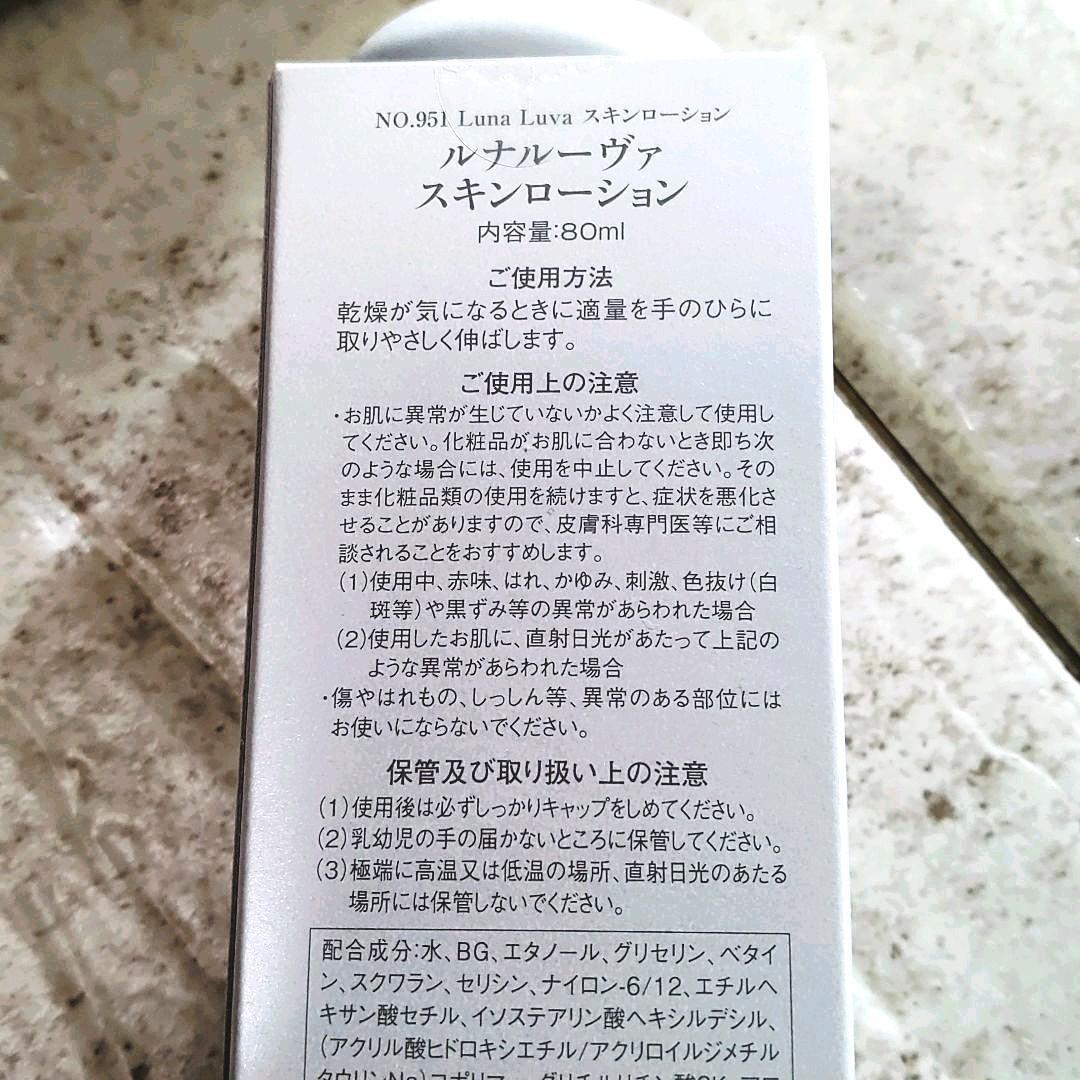 NO.951 Luna Luva スキンローション
ルナルーヴァ
スキンローション
内容量:80ml
ご使用方法
乾燥が気になるときに適量を手のひらに
取りやさしく伸ばします。
ご使用上の注意
・お肌に異常が生じていないかよく注意して使用し
てください。化粧品がお肌に合わないとき即ち次
のような場合には、使用を中止してください。その
まま化粧品類の使用を続けますと、症状を悪化さ
せることがありますので、皮膚科専門医等にご相
談されることをおすすめします。
(1)使用中、赤味、はれ、かゆみ、刺激、色抜け(白
斑等)や黒ずみ等の異常があらわれた場合
(2)使用したお肌に、直射日光があたって上記の
ような異常があらわれた場合
・傷やはれもの、しっしん等、異常のある部位には
お使いにならないでください。
保管及び取り扱い上の注意
(1)使用後は必ずしっかりキャップをしめてください。
(2)乳幼児の手の届かないところに保管してください。
(3)極端に高温又は低温の場所、直射日光のあたる
場所には保管しないでください。
配合成分:水、BG、エタノール、グリセリン、ベタイ
ン、スクワラン、セリシン、ナイロン-6/12、エチルヘ
キサン酸セチル、イソステアリン酸ヘキシルデシル、
(アクリル酸ヒドロキシエチル/アクリロイルジメチル
タウリンNa)コポリマー、グリチルリチン酸2K、